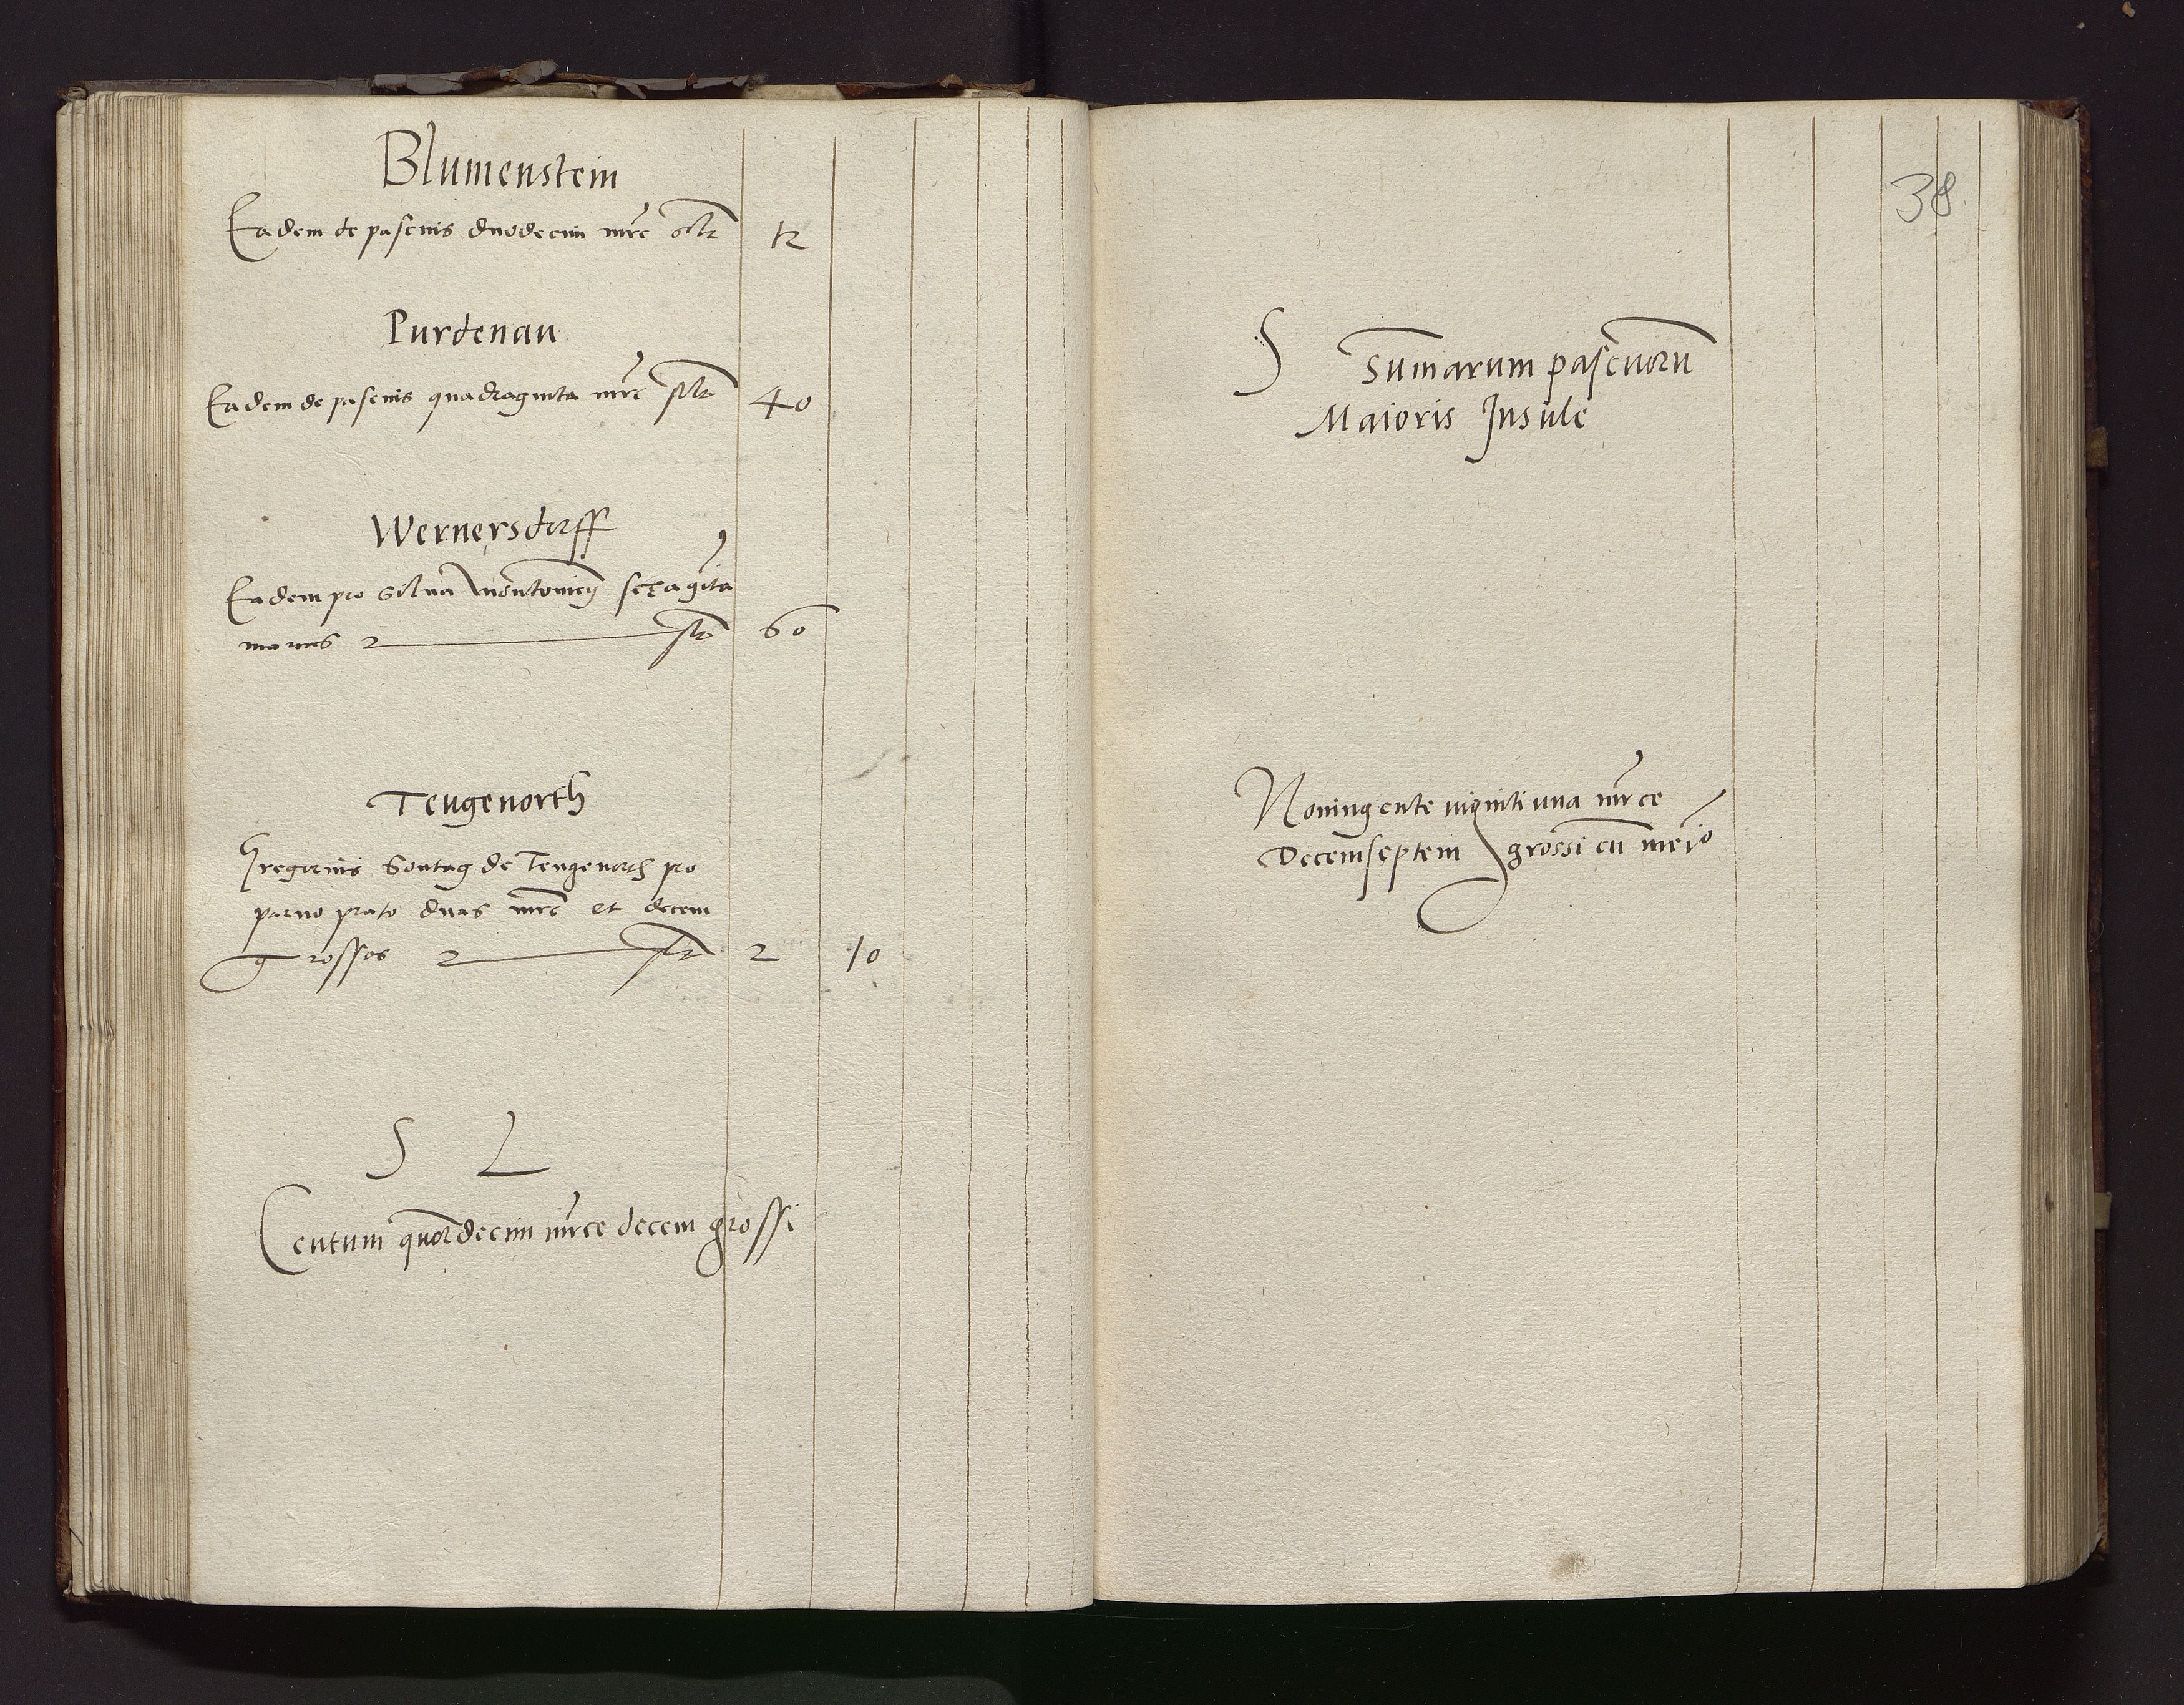 Blumenstein
Eadem de pascuis duodecim mrc solt 12
Purdenau
Eadem de pascuis quadraginta mrc solt 40
Wernersdorff
Eadem pro silua sexaginta
marcas 2 solt 60
Teugenorth
Gregorius Sontag de Teugenorth pro
paruo prato duas mrc et decem
grossos 2 solt 2 10
S L
Centum quordecim mrce decem grossi
38
S Sumarum pascuoru
Maioris Insule
Noningente viginti una mrce
Decemseptem grossi cu meio